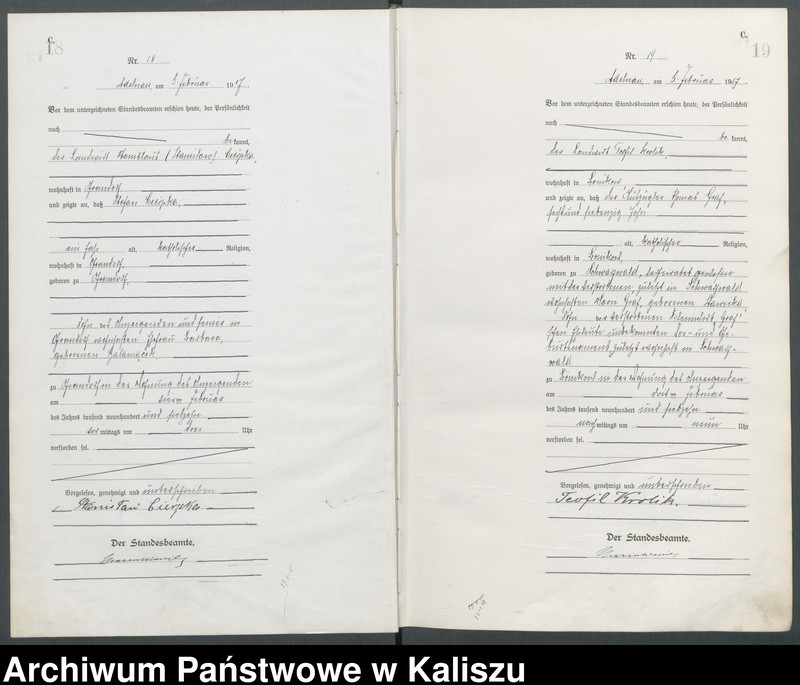 C.
18
Nr. 18
Adelnau, am 5 Februar 1917.
Vor dem unterzeichneten Standesbeamten erschien heute, der Persönlichkeit
nach
be kannt,
der Landwirt Stanislaus (Stanislaw) Cierpka,
wohnhaft in Grandorf
und zeigte an, daß Stefan Cierpka,
ein Jahr alt, katholischer Religion,
wohnhaft in Grandorf,
geboren zu Grandorf,
Sohn des Anzeigenden und seiner in
Grandorf wohnhaften Ehefrau Barbara,
geborenen
zu Grandorf in der Wohnung des Anzeigenden
am Februar
des Jahres tausend neunhundert und siebzehn
vor mittags um drei Uhr
verstorben sei.
Vorgelesen, genehmigt und unterschrieben
Stanisław Cierpka
Der Standesbeamte.
C.
19
Nr. 19
Adelnau, am 5 Februar 1917.
Vor dem unterzeichneten Standesbeamten erschien heute, der Persönlichkeit
nach
be kannt,
der Landwirt Teofil Krolik,
wohnhaft in Bonikow
und zeigte an, daß der Auszügler Thomas Graf,
siebzig Jahr
alt, katholischer Religion,
wohnhaft in Bonikow,
geboren zu Schwarzwald, verheiratet gewesen
mit der verstorbenen, zuletzt in Schwarzwald
wohnhaften Graf, geborenen
Sohn der verstorbenen Graf'
schen Eheleute unbekannten Vor- und Ge-
burtsnamens zuletzt wohnhaft in Schwarz-
wald
zu Bonikow in der Wohnung des Anzeigenden
am dritten Februar
des Jahres tausend neunhundert und siebzehn
nach mittags um neun Uhr
verstorben sei.
Vorgelesen, genehmigt und unterschrieben
Teofil Krolik.
Der Standesbeamte.
Archiwum Państwowe w Kaliszu